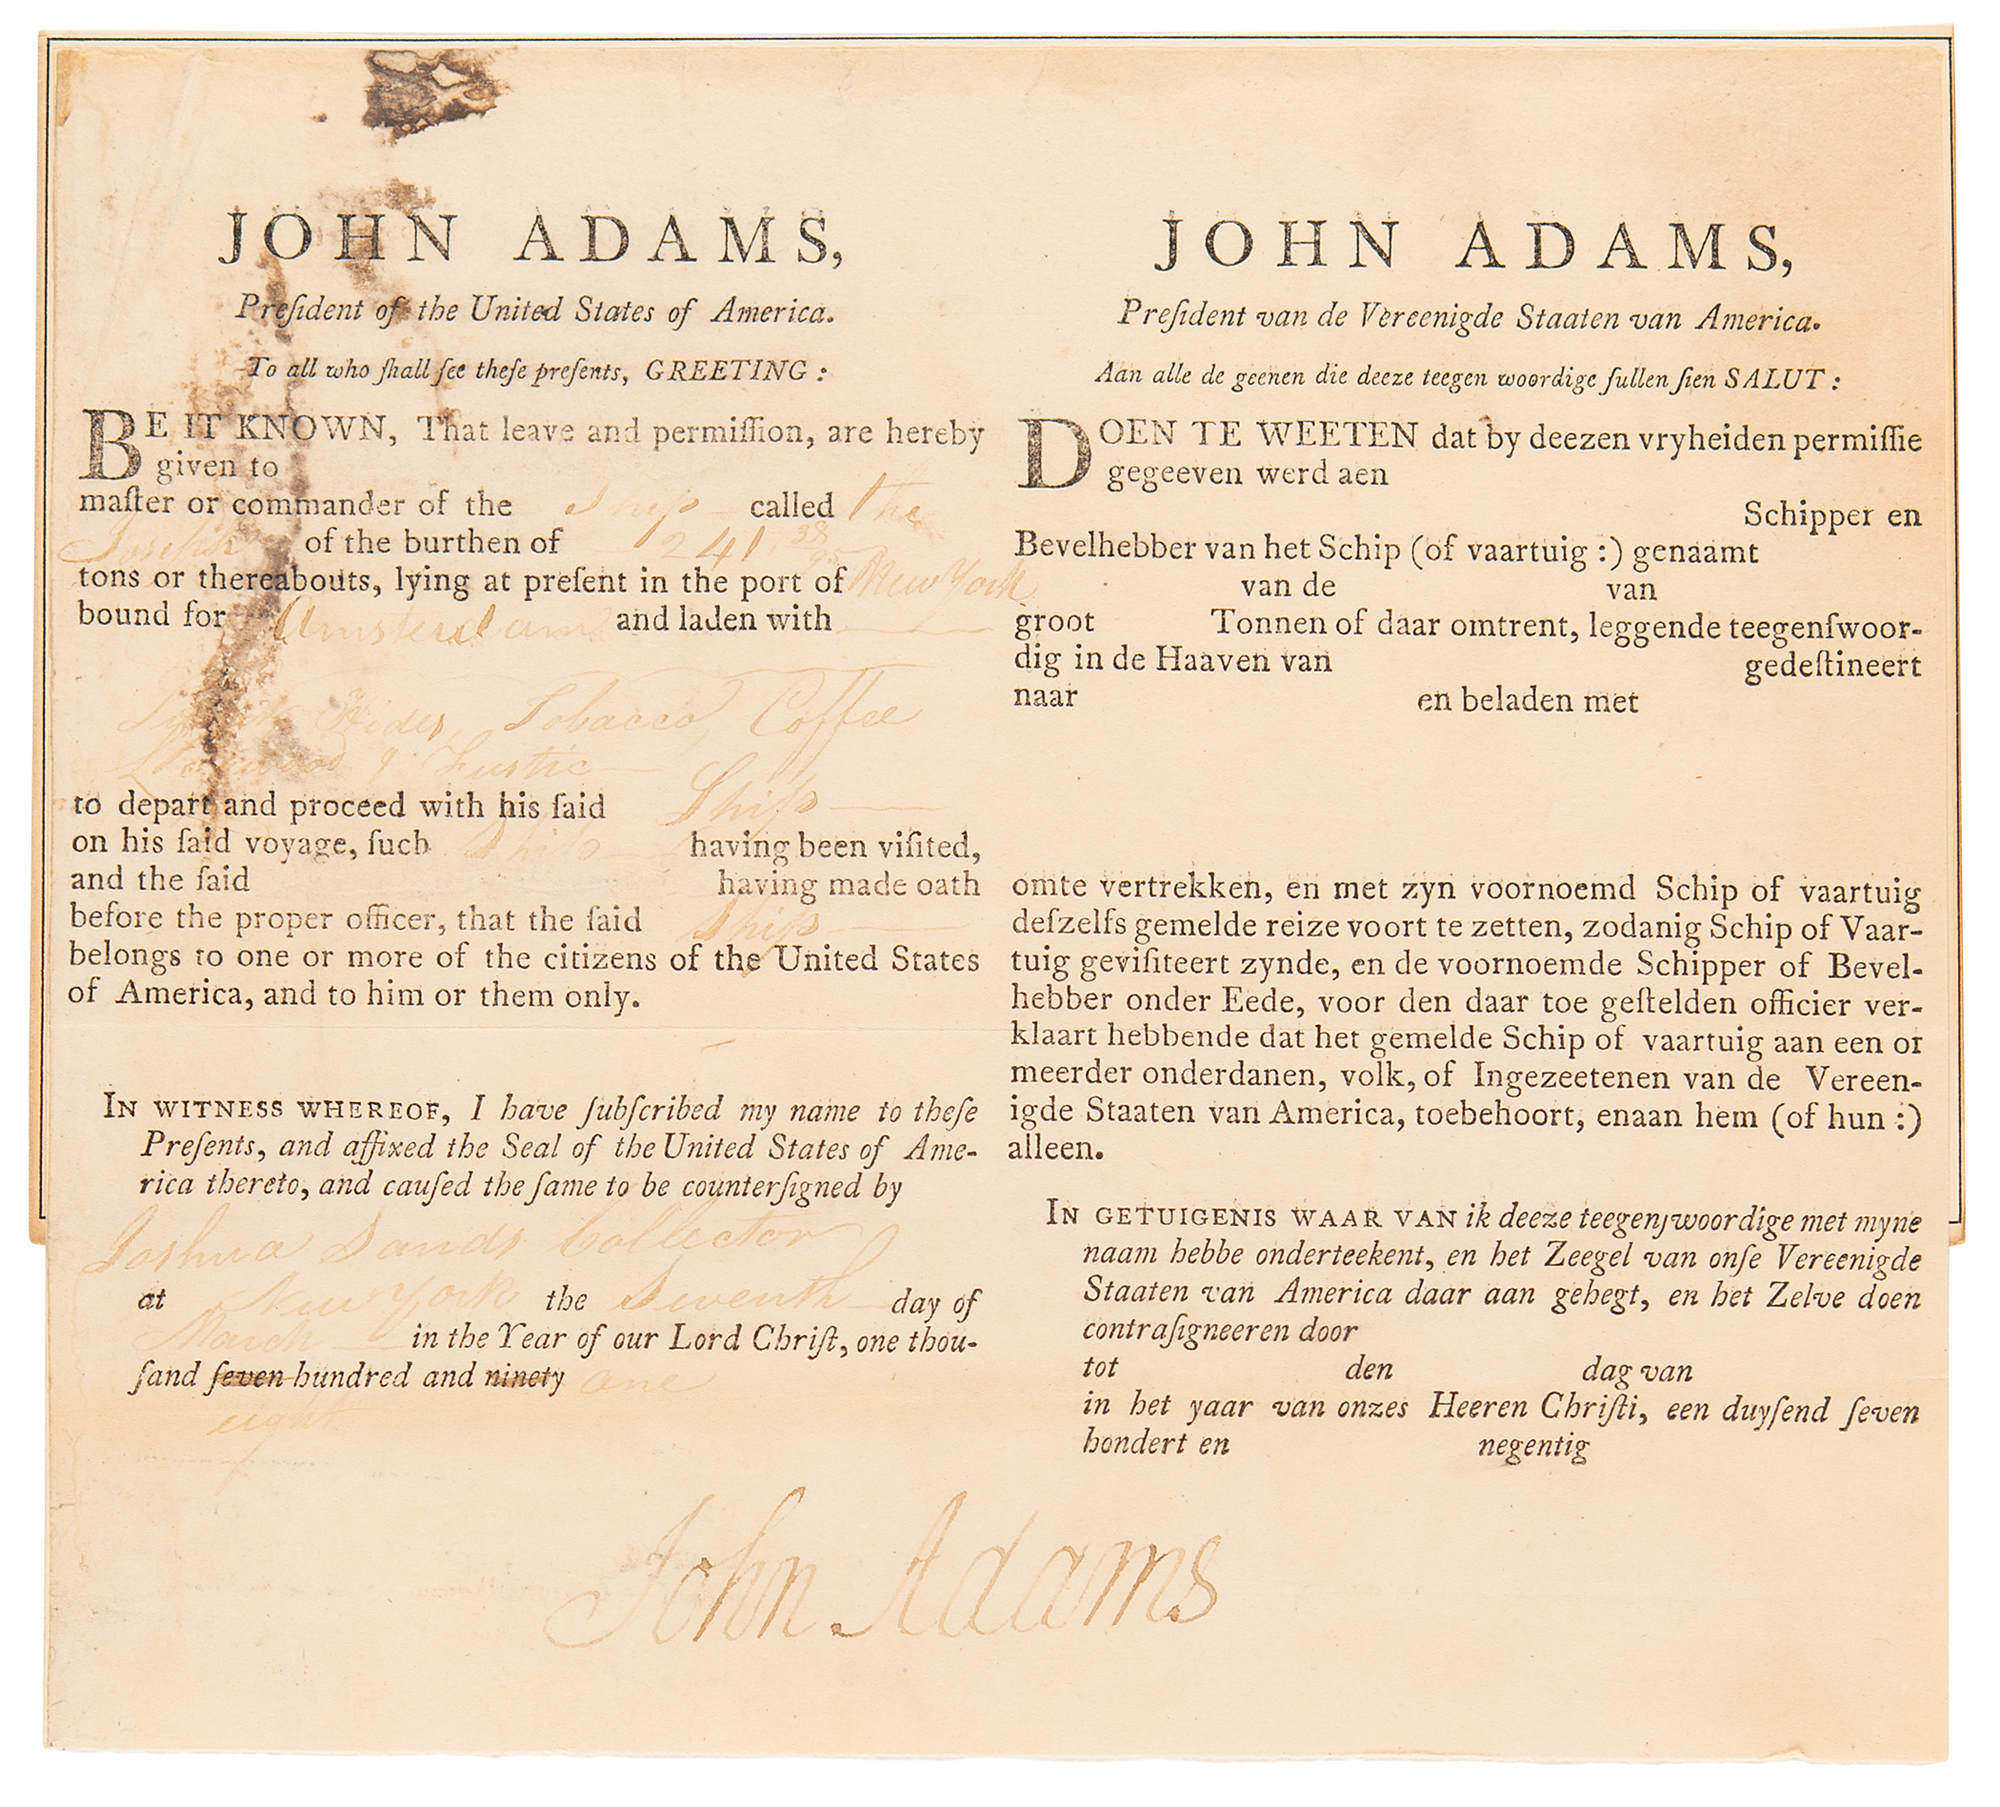 JOHN ADAMS,
Preſident of the United States of America.
To all who ſhall ſee theſe preſents, GREETING :
BE IT KNOWN, That leave and permiſſion, are hereby
given to
maſter or commander of the Ship called the
Joseph of the burthen of 241 38/95
tons or thereabouts, lying at preſent in the port of New York
bound for Amsterdam and laden with
Hides, Tobacco, Coffee
Logwood & Fustic
to depart and proceed with his ſaid Ship
on his ſaid voyage, ſuch Ship having been viſited,
and the ſaid having made oath
before the proper officer, that the ſaid Ship
belongs to one or more of the citizens of the United States
of America, and to him or them only.
IN WITNESS WHEREOF, I have ſubſcribed my name to theſe
Preſents, and affixed the Seal of the United States of Ame-
rica thereto, and cauſed the ſame to be counterſigned by
Joshua Sands Collector
at New York the Seventh day of
March in the Year of our Lord Chriſt, one thou-
ſand ſeven hundred and ninety one
eight
JOHN ADAMS,
Preſident van de Vereenigde Staaten van America.
Aan alle de geenen die deeze teegen woordige ſullen ſien SALUT :
DOEN TE WEETEN dat by deezen vryheiden permiſſie
gegeeven werd aen
Schipper en
Bevelhebber van het Schip (of vaartuig :) genaamt
van de van
groot Tonnen of daar omtrent, leggende teegenſwoor-
dig in de Haaven van gedeſtineert
naar en beladen met
omte vertrekken, en met zyn voornoemd Schip of vaartuig
deſzelfs gemelde reize voort te zetten, zodanig Schip of Vaar-
tuig geviſiteert zynde, en de voornoemde Schipper of Bevel-
hebber onder Eede, voor den daar toe geſtelden officier ver-
klaart hebbende dat het gemelde Schip of vaartuig aan een of
meerder onderdanen, volk, of Ingezeetenen van de Vereen-
igde Staaten van America, toebehoort, enaan hem (of hun :)
alleen.
IN GETUIGENIS WAAR VAN ik deeze teegenſwoordige met myne
naam hebbe onderteekent, en het Zeegel van onſe Vereenigde
Staaten van America daar aan gehegt, en het Zelve doen
contraſigneeren door
tot den dag van
in het yaar van onzes Heeren Chriſti, een duyſend ſeven
hondert en negentig
John Adams